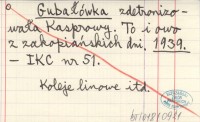 Gubałówka zdetronizo-
wała Kasprowy. To i owo
z zakopiańskich dni. 1939.
– IKC nr 51.
Koleje linowe itd.